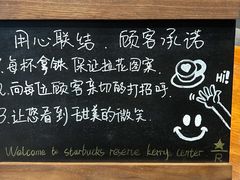 用心联结、顾客承诺
1.每杯拿铁 保证拉花图案
2.向每位顾客亲切的打招呼
3.让您看到甜美的微笑
Hi!
Welcome to starbucks reserve kerry center
R